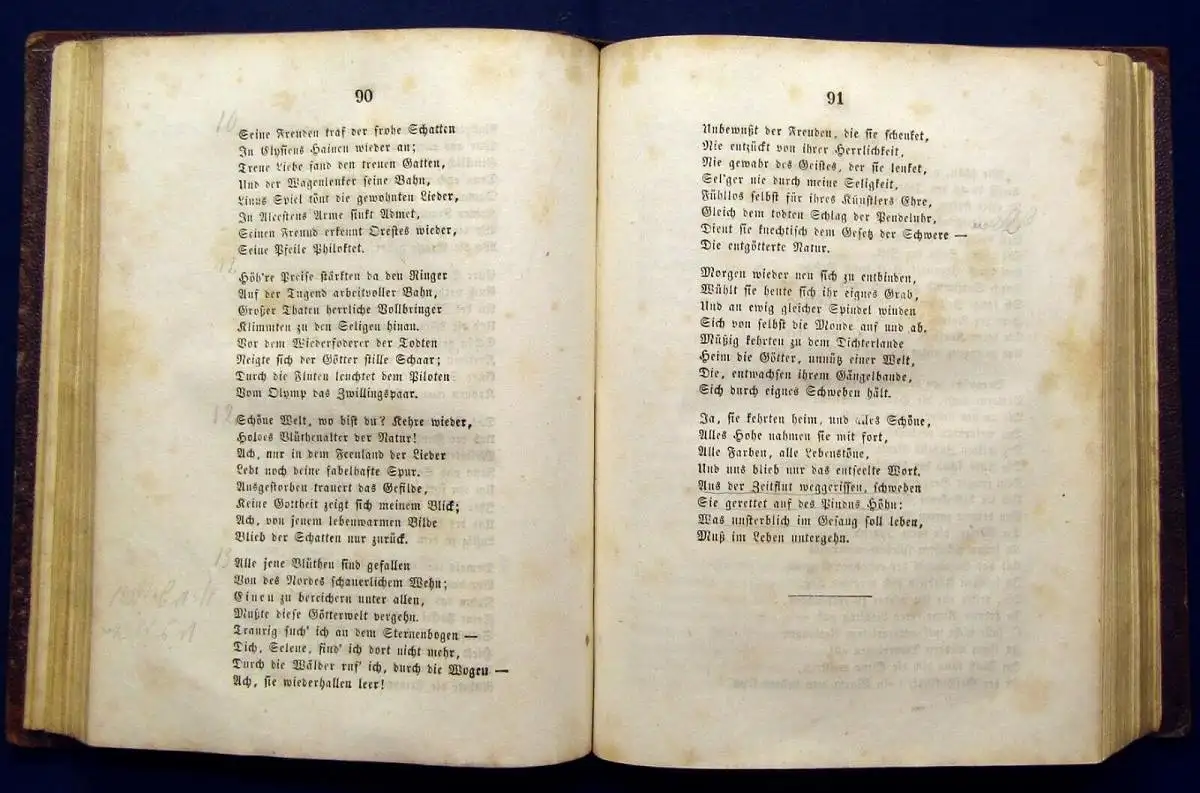 90
10
Seine Freuden traf der frohe Schatten
In Elysiens Hainen wieder an;
Treue Liebe fand den treuen Gatten,
Und der Wagenlenker seine Bahn,
Linus Spiel tönt die gewohnten Lieder,
In Alcestens Arme sinkt Admet,
Seinen Freund erkennt Orestes wieder,
Seine Pfeile Philoktet.
Höh're Preise stärkten da den Ringer
Auf der Tugend arbeitvoller Bahn,
Großer Thaten herrliche Vollbringer
Klimmten zu den Seligen hinan.
Vor dem Wiederfoderer der Todten
Neigte sich der Götter stille Schaar;
Durch die Fluten leuchtet dem Piloten
Vom Olymp das Zwillingspaar.
12
Schöne Welt, wo bist du? Kehre wieder,
Holdes Blüthenalter der Natur!
Ach, nur in dem Feenland der Lieder
Lebt noch deine fabelhafte Spur.
Ausgestorben trauert das Gefilde,
Keine Gottheit zeigt sich meinem Blick;
Ach, von jenem lebenwarmen Bilde
Blieb der Schatten nur zurück.
13
Alle jene Blüthen sind gefallen
Von des Nordes schauerlichem Wehn;
Einen zu bereichern unter allen,
Mußte diese Götterwelt vergehn.
Traurig such' ich an dem Sternenbogen —
Dich, Selene, find' ich dort nicht mehr,
Durch die Wälder ruf' ich, durch die Wogen —
Ach, sie wiederhallen leer!
91
Unbewußt der Freuden, die sie schenket,
Nie entzückt von ihrer Herrlichkeit,
Nie gewahr des Geistes, der sie lenket,
Sel'ger nie durch meine Seligkeit,
Fühllos selbst für ihres Künstlers Ehre,
Gleich dem todten Schlag der Pendeluhr,
Dient sie knechtisch dem Gesetz der Schwere —
Die entgötterte Natur.
Morgen wieder neu sich zu entbinden,
Wühlt sie heute sich ihr eignes Grab,
Und an ewig gleicher Spindel winden
Sich von selbst die Monde auf und ab.
Müßig kehrten zu dem Dichterlande
Heim die Götter, unnütz einer Welt,
Die, entwachsen ihrem Gängelbande,
Sich durch eignes Schweben hält.
Ja, sie kehrten heim, und alles Schöne,
Alles Hohe nahmen sie mit fort,
Alle Farben, alle Lebenstöne,
Und uns blieb nur das entseelte Wort.
Aus der Zeitflut weggerissen, schweben
Sie gerettet auf des Pindus Höhn:
Was unsterblich im Gesang soll leben,
Muß im Leben untergehn.